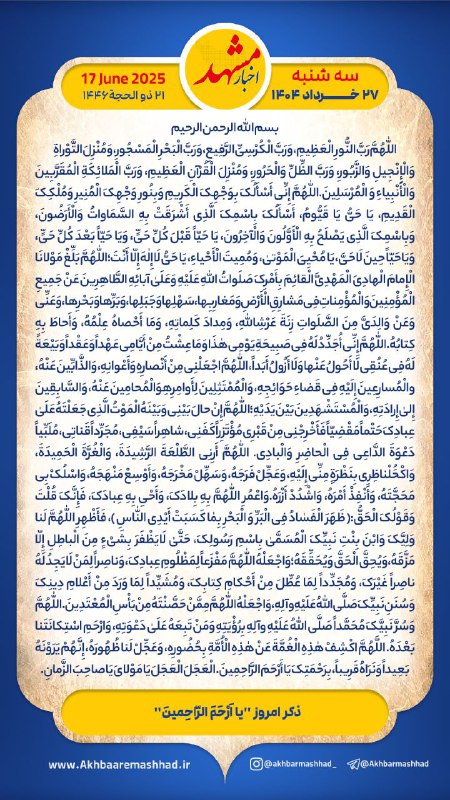 اخبار
مشهد
سه شنبه
۲۷ خـــرداد ۱۴۰۴
17 June 2025
۲۱ ذو الحجة ۱۴۴۶
بسم الله الرحمن الرحیم
اللّٰهُمَّ رَبَّ النُّورِ الْعَظِیمِ، وَرَبَّ الْکُرْسِیِّ الرَّفِیعِ، وَرَبَّ الْبَحْرِ الْمَسْجُورِ، وَمُنْزِلَ التَّوْراةِ
وَالْإِنْجِیلِ وَالزَّبُورِ وَرَبَّ الظِّلِّ وَالْحَرُورِ، وَمُنْزِلَ الْقُرْآنِ الْعَظِیمِ، وَرَبَّ الْمَلائِکَةِ الْمُقَرَّبِینَ
وَالْأَنْبِیاءِ وَ الْمُرْسَلِینَ. اللّٰهُمَّ إِنِّی أَسْأَلُکَ بِوَجْهِکَ الْکَرِیمِ وَبِنُورِ وَجْهِکَ الْمُنِیرِ وَمُلْکِکَ
الْقَدِیمِ، یَا حَیُّ یَا قَیُّومُ، أَسْأَلُکَ بِاسْمِکَ الَّذِی أَشْرَقَتْ بِهِ السَّمَاوَاتُ وَالْأَرَضُونَ،
وَبِاسْمِکَ الَّذِی یَصْلَحُ بِهِ الْأَوَّلُونَ وَالْآخِرُونَ، یَا حَیّاً قَبْلَ کُلِّ حَیٍّ، وَیَا حَیّاً بَعْدَ کُلِّ حَیٍّ،
وَیَا حَیّاً حِینَ لَاحَیَّ، یَا مُحْیِیَ الْمَوْتیٰ، وَمُمِیتَ الْأَحْیاءِ، یَا حَیُّ لَاإِلٰهَ إِلّا أَنْتَ؛ اللّٰهُمَّ بَلِّغْ مَوْلانَا
الْإِمامَ الْهادِیَ الْمَهْدِیَّ الْقائِمَ بِأَمْرِکَ صَلَواتُ اللّٰهِ عَلَیْهِ وَعَلَیٰ آبائِهِ الطَّاهِرِینَ عَنْ جَمِیعِ
الْمُؤْمِنِینَ وَالْمُؤْمِناتِ فِی مَشارِقِ الْأَرْضِ وَمَغارِبِها، سَهْلِها وَجَبَلِها، وَبَرِّها وَبَحْرِها، وَعَنِّی
وَعَنْ وَالِدَیَّ مِنَ الصَّلَواتِ زِنَةَ عَرْشِ اللّٰهِ، وَمِدادَ کَلِماتِهِ، وَمَا أَحْصاهُ عِلْمُهُ، وَأَحاطَ بِهِ
کِتابُهُ. اللّٰهُمَّ إِنِّی أُجَدِّدُ لَهُ فِی صَبِیحَةِ یَوْمِی هٰذَا وَمَا عِشْتُ مِنْ أَیَّامِی عَهْداً وَعَقْداً وَبَیْعَةً
لَهُ فِی عُنُقِی لَا أَحُولُ عَنْها وَلَا أَزُولُ أَبَداً، اللّٰهُمَّ اجْعَلْنِی مِنْ أَنْصارِهِ وَأَعْوانِهِ، وَالذَّابِّینَ عَنْهُ،
وَالْمُسارِعِینَ إِلَیْهِ فِی قَضاءِ حَوَائِجِهِ، وَالْمُمْتَثِلِینَ لِأَوامِرِهِ وَالْمُحامِینَ عَنْهُ، وَالسَّابِقِینَ
إِلیٰ إِرادَتِهِ، وَالْمُسْتَشْهَدِینَ بَیْنَ یَدَیْهِ؛ اللّٰهُمَّ إِنْ حالَ بَیْنِی وَبَیْنَهُ الْمَوْتُ الَّذِی جَعَلْتَهُ عَلَیٰ
عِبادِکَ حَتْماً مَقْضِیّاً فَأَخْرِجْنِی مِنْ قَبْرِی مُؤْتَزِراً کَفَنِی، شاهِراً سَیْفِی، مُجَرِّداً قَناتِی، مُلَبِّیاً
دَعْوَةَ الدَّاعِی فِی الْحاضِرِ وَالْبادِی. اللّٰهُمَّ أَرِنِی الطَّلْعَةَ الرَّشِیدَةَ، وَالْغُرَّةَ الْحَمِیدَةَ،
وَاکْحُلْ ناظِرِی بِنَظْرَةٍ مِنِّی إِلَیْهِ، وَعَجِّلْ فَرَجَهُ، وَسَهِّلْ مَخْرَجَهُ، وَأَوْسِعْ مَنْهَجَهُ، وَاسْلُکْ بِی
مَحَجَّتَهُ، وَأَنْفِذْ أَمْرَهُ، وَاشْدُدْ أَزْرَهُ. وَاعْمُرِ اللّٰهُمَّ بِهِ بِلادَکَ، وَأَحْیِ بِهِ عِبادَکَ، فَإِنَّکَ قُلْتَ
وَقَوْلُکَ الْحَقُّ: ﴿ظَهَرَ الْفَسٰادُ فِی الْبَرِّ وَ الْبَحْرِ بِمٰا کَسَبَتْ أَیْدِی النّٰاسِ﴾، فَأَظْهِرِ اللّٰهُمَّ لَنا
وَلِیَّکَ وَابْنَ بِنْتِ نَبِیِّکَ الْمُسَمَّیٰ بِاسْمِ رَسُولِکَ، حَتَّیٰ لَا یَظْفَرَ بِشَیْءٍ مِنَ الْباطِلِ إِلّا
مَزَّقَهُ، وَیُحِقَّ الْحَقَّ وَیُحَقِّقَهُ؛ وَاجْعَلْهُ اللّٰهُمَّ مَفْزَعاً لِمَظْلُومِ عِبادِکَ، وَناصِراً لِمَنْ لَا یَجِدُ لَهُ
ناصِراً غَیْرَکَ، وَمُجَدِّداً لِمَا عُطِّلَ مِنْ أَحْکامِ کِتابِکَ، وَمُشَیِّداً لِمَا وَرَدَ مِنْ أَعْلامِ دِینِکَ
وَسُنَنِ نَبِیِّکَ صَلَّی اللّٰهُ عَلَیْهِ وَآلِهِ، وَاجْعَلْهُ اللّٰهُمَّ مِمَّنْ حَصَّنْتَهُ مِنْ بَأْسِ الْمُعْتَدِینَ. اللّٰهُمَّ
وَسُرَّ نَبِیَّکَ مُحَمَّداً صَلَّی اللّٰهُ عَلَیْهِ وَآلِهِ بِرُؤْیَتِهِ وَمَنْ تَبِعَهُ عَلَیٰ دَعْوَتِهِ، وَارْحَمِ اسْتِکانَتَنا
بَعْدَهُ. اللّٰهُمَّ اکْشِفْ هٰذِهِ الْغُمَّةَ عَنْ هٰذِهِ الْأُمَّةِ بِحُضُورِهِ، وَعَجِّلْ لَنا ظُهُورَهُ، إِنَّهُمْ یَرَوْنَهُ
بَعِیداً وَنَرَاهُ قَرِیباً، بِرَحْمَتِکَ یَا أَرْحَمَ الرَّاحِمِینَ. الْعَجَلَ الْعَجَلَ یَا مَوْلایَ یَا صاحِبَ الزَّمانِ.
ذکر امروز "یا اَرْحَمَ الرّاحِمینَ"
www.Akhbaaremashhad.ir
@akhbarmashhad_
@Akhbarmashhad